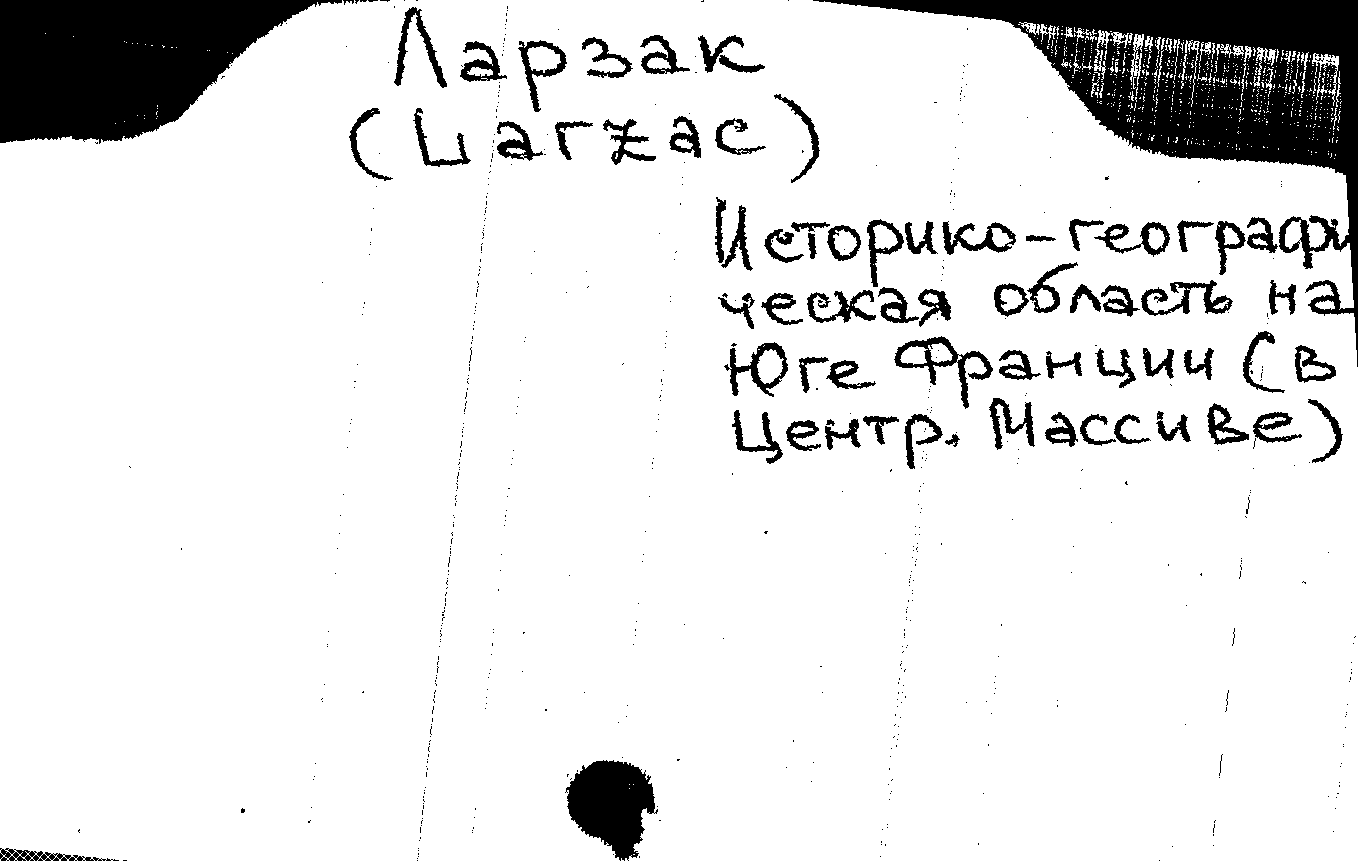 Ларзак
(Larzac)
Историко-географи
ческая область на
Юге Франции (в
Центр. Массиве)